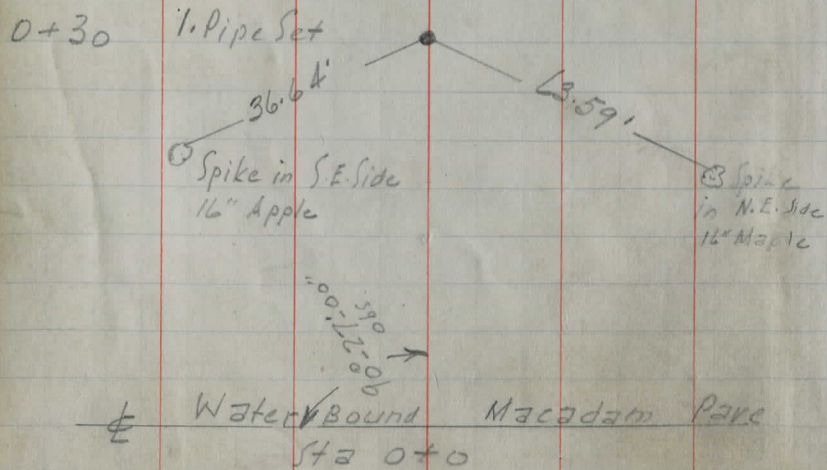 0+30 1. Pipe Set
36.64'
63.59'
Spike in S.E. Side
16" Apple
Spike
in N.E. Side
16" Maple
90°-27'-00"
obs
℄ Water Bound Macadam Pave
Sta 0+0